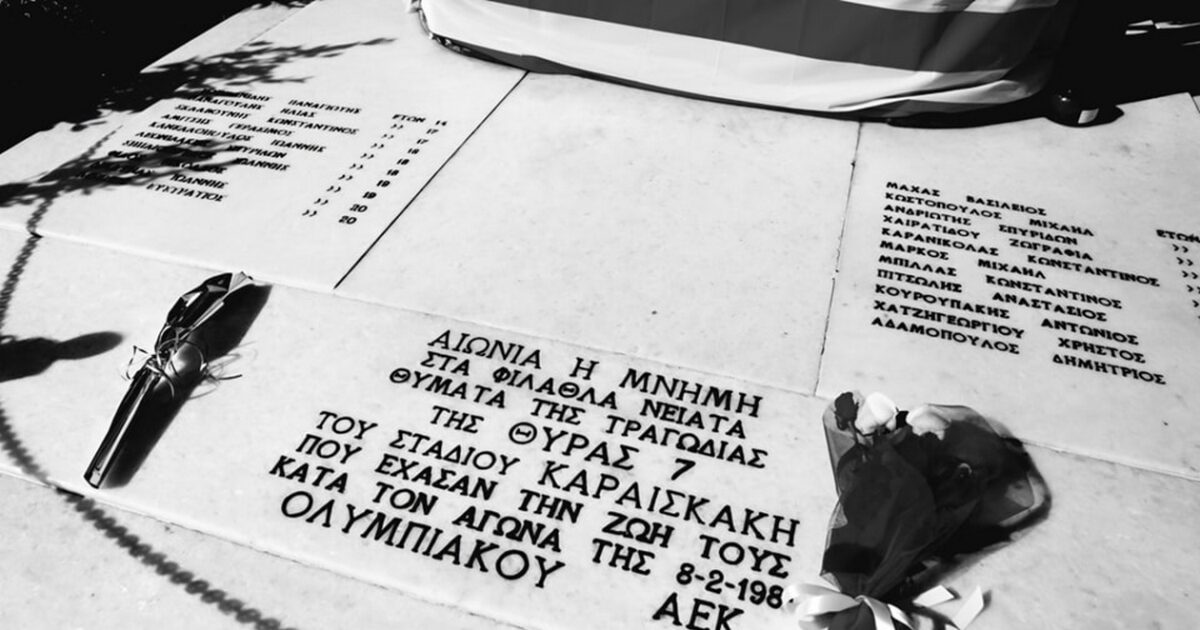 ΠΑΝΑΓΙΩΤΗΣ ΕΤΩΝ 14
ΗΛΙΑΣ >> 17
ΣΚΛΑΒΟΥΝΗΣ ΚΩΝΣΤΑΝΤΙΝΟΣ >> 17
ΑΛΙΤΣΗΣ ΓΕΡΑΣΙΜΟΣ >> 18
ΚΑΝΕΛΛΟΠΟΥΛΟΣ ΙΩΑΝΝΗΣ >> 18
ΣΠΥΡΙΔΩΝ >> 18
ΙΩΑΝΝΗΣ >> 19
>> 19
ΙΩΑΝΝΗΣ >> 20
ΕΥΣΤΡΑΤΙΟΣ >> 20
ΜΑΧΑΣ ΒΑΣΙΛΕΙΟΣ
ΚΩΣΤΟΠΟΥΛΟΣ ΜΙΧΑΗΛ
ΑΝΔΡΙΩΤΗΣ ΣΠΥΡΙΔΩΝ
ΧΑΙΡΑΤΙΔΟΥ ΖΩΓΡΑΦΙΑ
ΚΑΡΑΝΙΚΟΛΑΣ ΚΩΝΣΤΑΝΤΙΝΟΣ
ΜΑΡΚΟΣ ΜΙΧΑΗΛ
ΜΠΙΛΛΑΣ ΚΩΝΣΤΑΝΤΙΝΟΣ
ΠΙΤΣΩΛΗΣ ΑΝΑΣΤΑΣΙΟΣ
ΚΟΥΡΟΥΠΑΚΗΣ ΑΝΤΩΝΙΟΣ
ΧΑΤΖΗΓΕΩΡΓΙΟΥ ΧΡΗΣΤΟΣ
ΑΔΑΜΟΠΟΥΛΟΣ ΔΗΜΗΤΡΙΟΣ
ΑΙΩΝΙΑ Η ΜΝΗΜΗ
ΣΤΑ ΦΙΛΑΘΛΑ ΝΕΙΑΤΑ
ΘΥΜΑΤΑ ΤΗΣ ΤΡΑΓΩΔΙΑΣ
ΤΗΣ ΘΥΡΑΣ 7
ΤΟΥ ΣΤΑΔΙΟΥ ΚΑΡΑΙΣΚΑΚΗ
ΠΟΥ ΕΧΑΣΑΝ ΤΗΝ ΖΩΗ ΤΟΥΣ
ΚΑΤΑ ΤΟΝ ΑΓΩΝΑ ΤΗΣ 8-2-198
ΟΛΥΜΠΙΑΚΟΥ ΑΕΚ